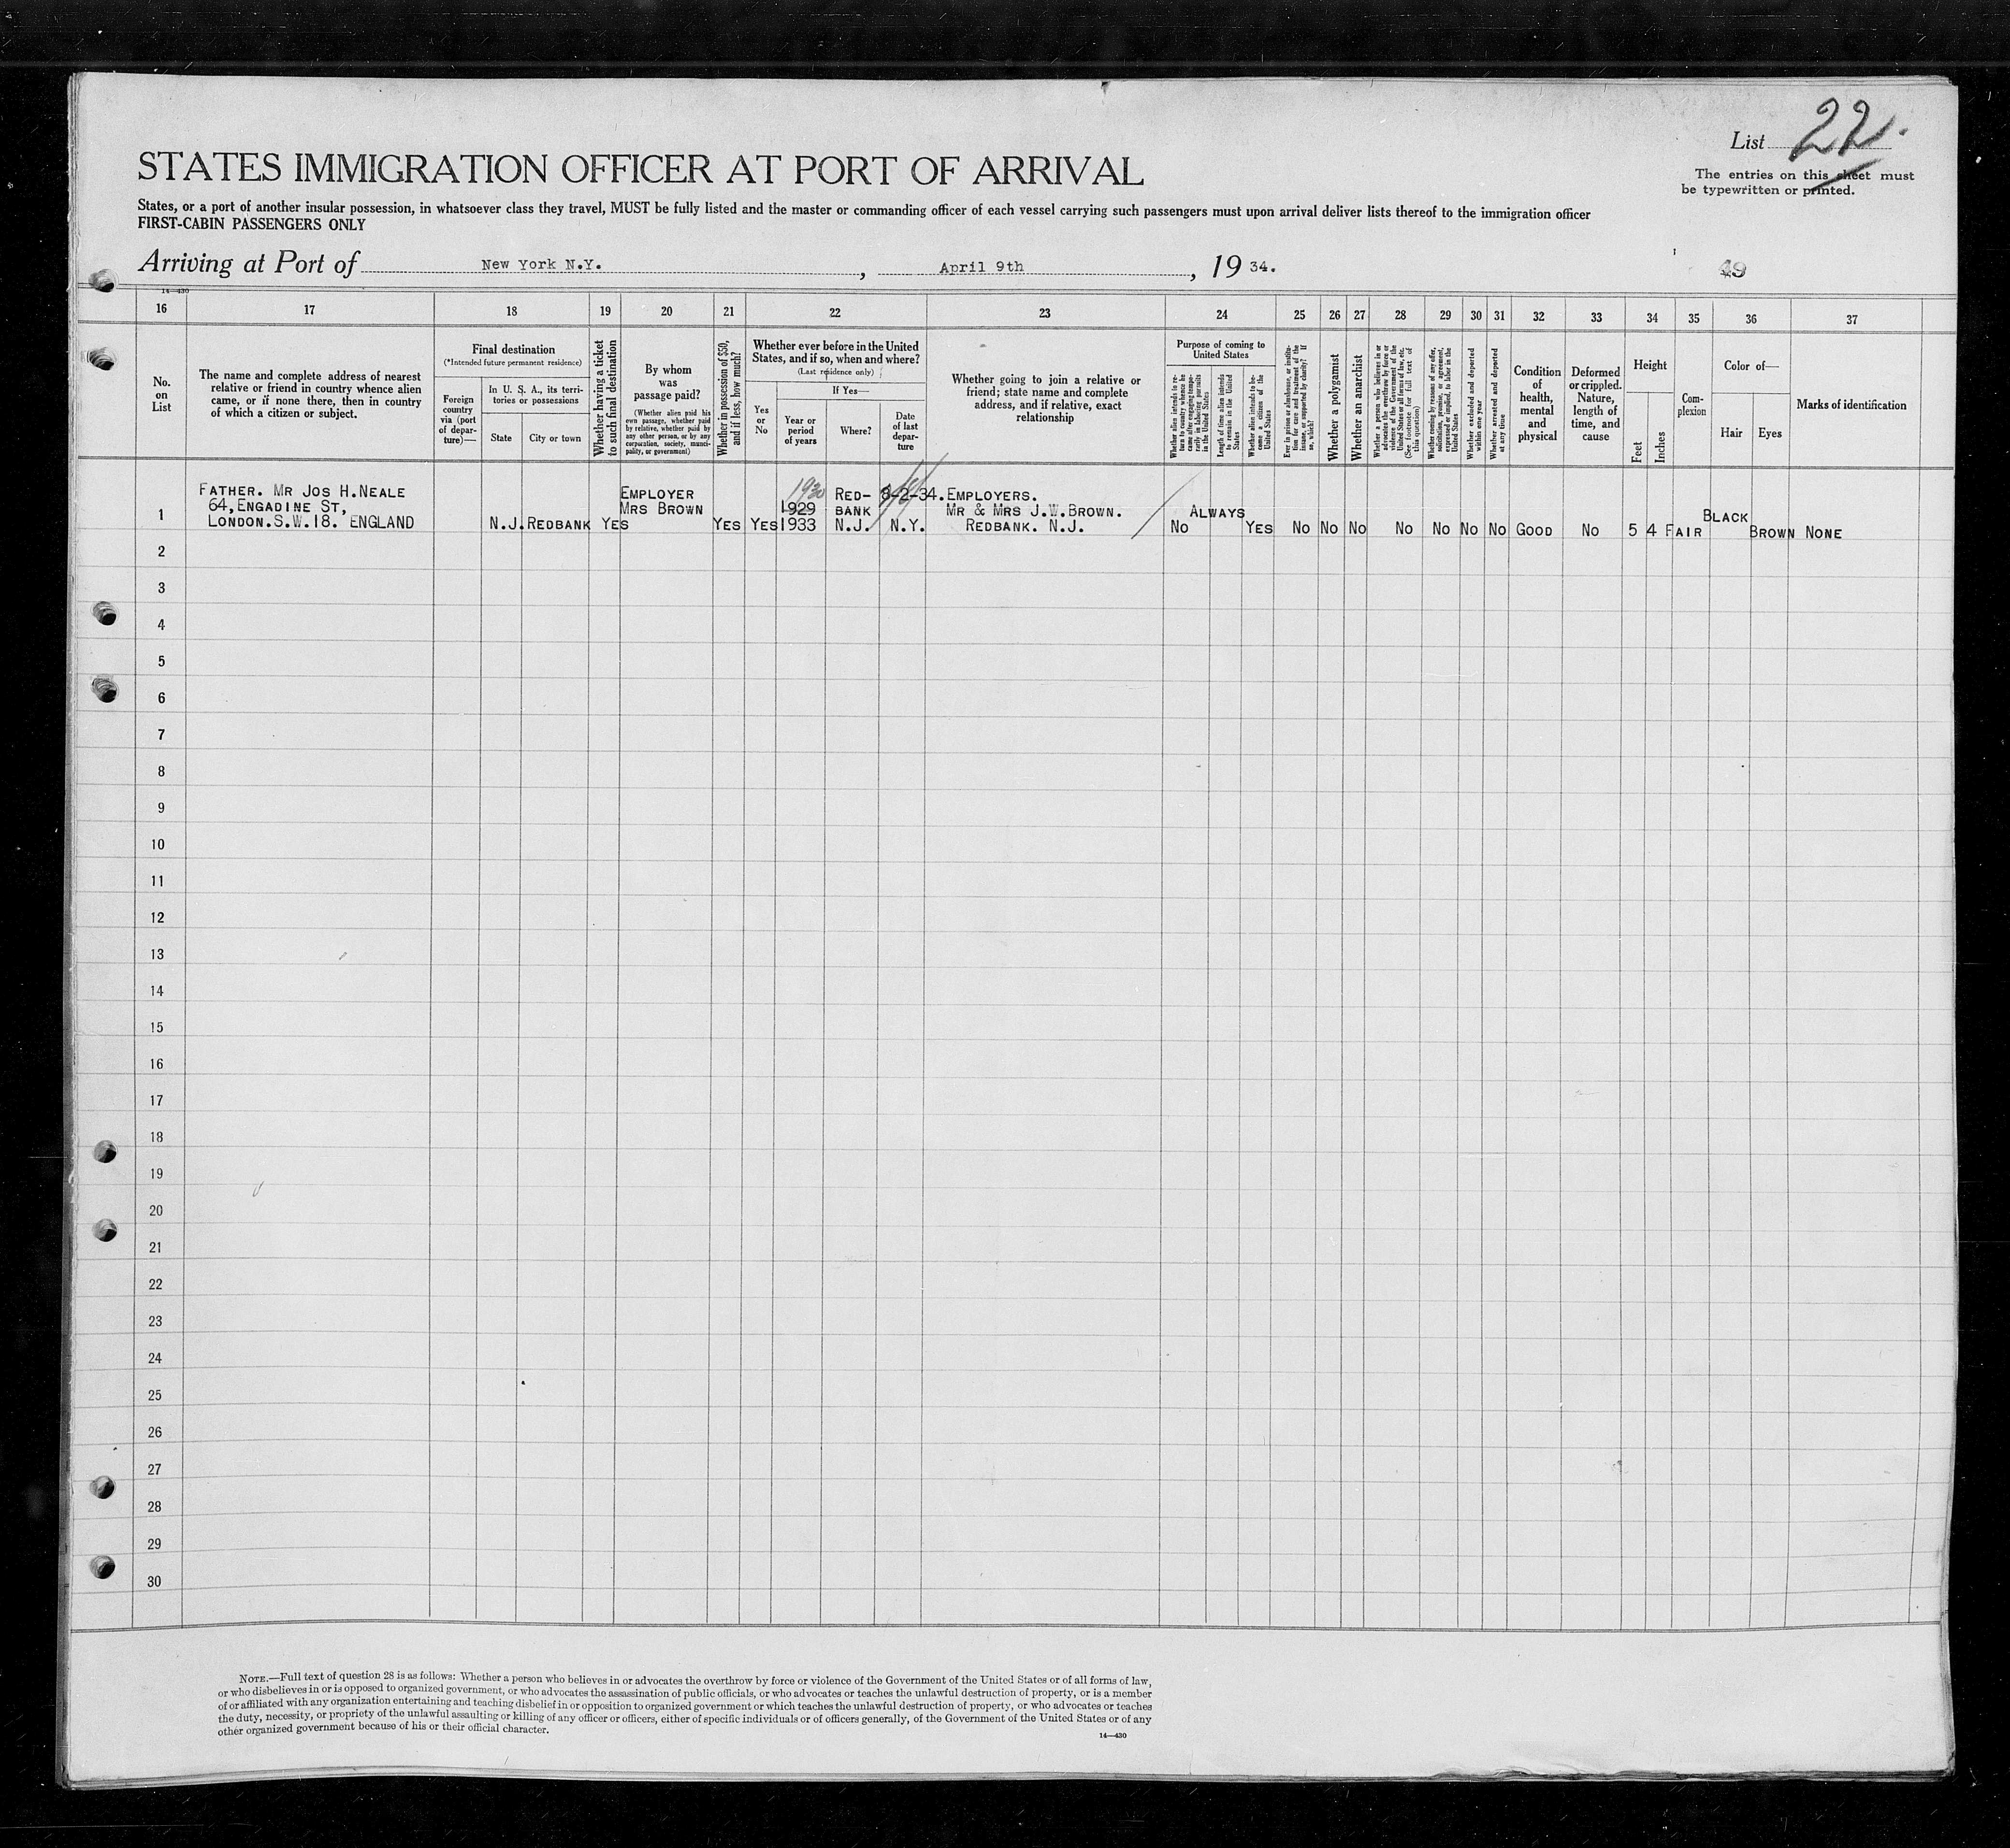 List 22.
The entries on this sheet must
be typewritten or printed.
STATES IMMIGRATION OFFICER AT PORT OF ARRIVAL
States, or a port of another insular possession, in whatsoever class they travel, MUST be fully listed and the master or commanding officer of each vessel carrying such passengers must upon arrival deliver lists thereof to the immigration officer
FIRST-CABIN PASSENGERS ONLY
Arriving at Port of New York N.Y. , April 9th , 19 34.
14—430
16 17 18 19 20 21 22 23 24 25 26 27 28 29 30 31 32 33 34 35 36 37
No.
on
List
The name and complete address of nearest
relative or friend in country whence alien
came, or if none there, then in country
of which a citizen or subject.
Final destination
(*Intended future permanent residence)
Foreign
country
via (port
of depar-
ture)—
In U. S. A., its terri-
tories or possessions
State
City or town
Whether having a ticket
to such final destination
By whom
was
passage paid?
(Whether alien paid his
own passage, whether paid
by relative, whether paid by
any other person, or by any
corporation, society, munici-
pality, or government)
Whether in possession of $50,
and if less, how much?
Whether ever before in the United
States, and if so, when and where?
(Last residence only)
Yes
or
No
If Yes—
Year or
period
of years
Where?
Date
of last
depar-
ture
Whether going to join a relative or
friend; state name and complete
address, and if relative, exact
relationship
Purpose of coming to
United States
Whether alien intends to re-
turn to country whence he
came after engaging tempo-
rarily in laboring pursuits
in the United States
Length of time alien intends
to remain in the United
States
Whether alien intends to be-
come a citizen of the
United States
Ever in prison or almshouse, or institu-
tion for care and treatment of the
insane, or supported by charity? If
so, which?
Whether a polygamist
Whether an anarchist
Whether a person who believes in or
advocates the overthrow by force or
violence of the Government of the
United States or all forms of law, etc.
(See footnote for full text of
this question)
Whether coming by reason of any offer,
solicitation, promise, or agreement,
expressed or implied, to labor in the
United States
Whether excluded and deported
within one year
Whether arrested and deported
at any time
Condition
of
health,
mental
and
physical
Deformed
or crippled.
Nature,
length of
time, and
cause
Height
Feet
Inches
Com-
plexion
Color of—
Hair
Eyes
Marks of identification
1
FATHER. MR JOS H.NEALE
64,ENGADINE ST,
LONDON.S.W.18. ENGLAND
N.J. REDBANK YES
EMPLOYER
MRS BROWN
YES YES
1930
1929
1933
RED-
BANK
N.J.
8-2-34.
N.Y.
EMPLOYERS.
MR & MRS J.W.BROWN.
REDBANK. N.J.
NO ALWAYS YES NO NO NO NO NO NO NO GOOD NO 5 4 FAIR BLACK BROWN NONE
2
3
4
5
6
7
8
9
10
11
12
13
14
15
16
17
18
19
20
21
22
23
24
25
26
27
28
29
30
NOTE.—Full text of question 28 is as follows: Whether a person who believes in or advocates the overthrow by force or violence of the Government of the United States or of all forms of law,
or who disbelieves in or is opposed to organized government, or who advocates the assassination of public officials, or who advocates or teaches the unlawful destruction of property, or is a member
of or affiliated with any organization entertaining and teaching disbelief in or opposition to organized government or which teaches the unlawful destruction of property, or who advocates or teaches
the duty, necessity, or propriety of the unlawful assaulting or killing of any officer or officers, either of specific individuals or of officers generally, of the Government of the United States or of any
other organized government because of his or their official character.
14—430